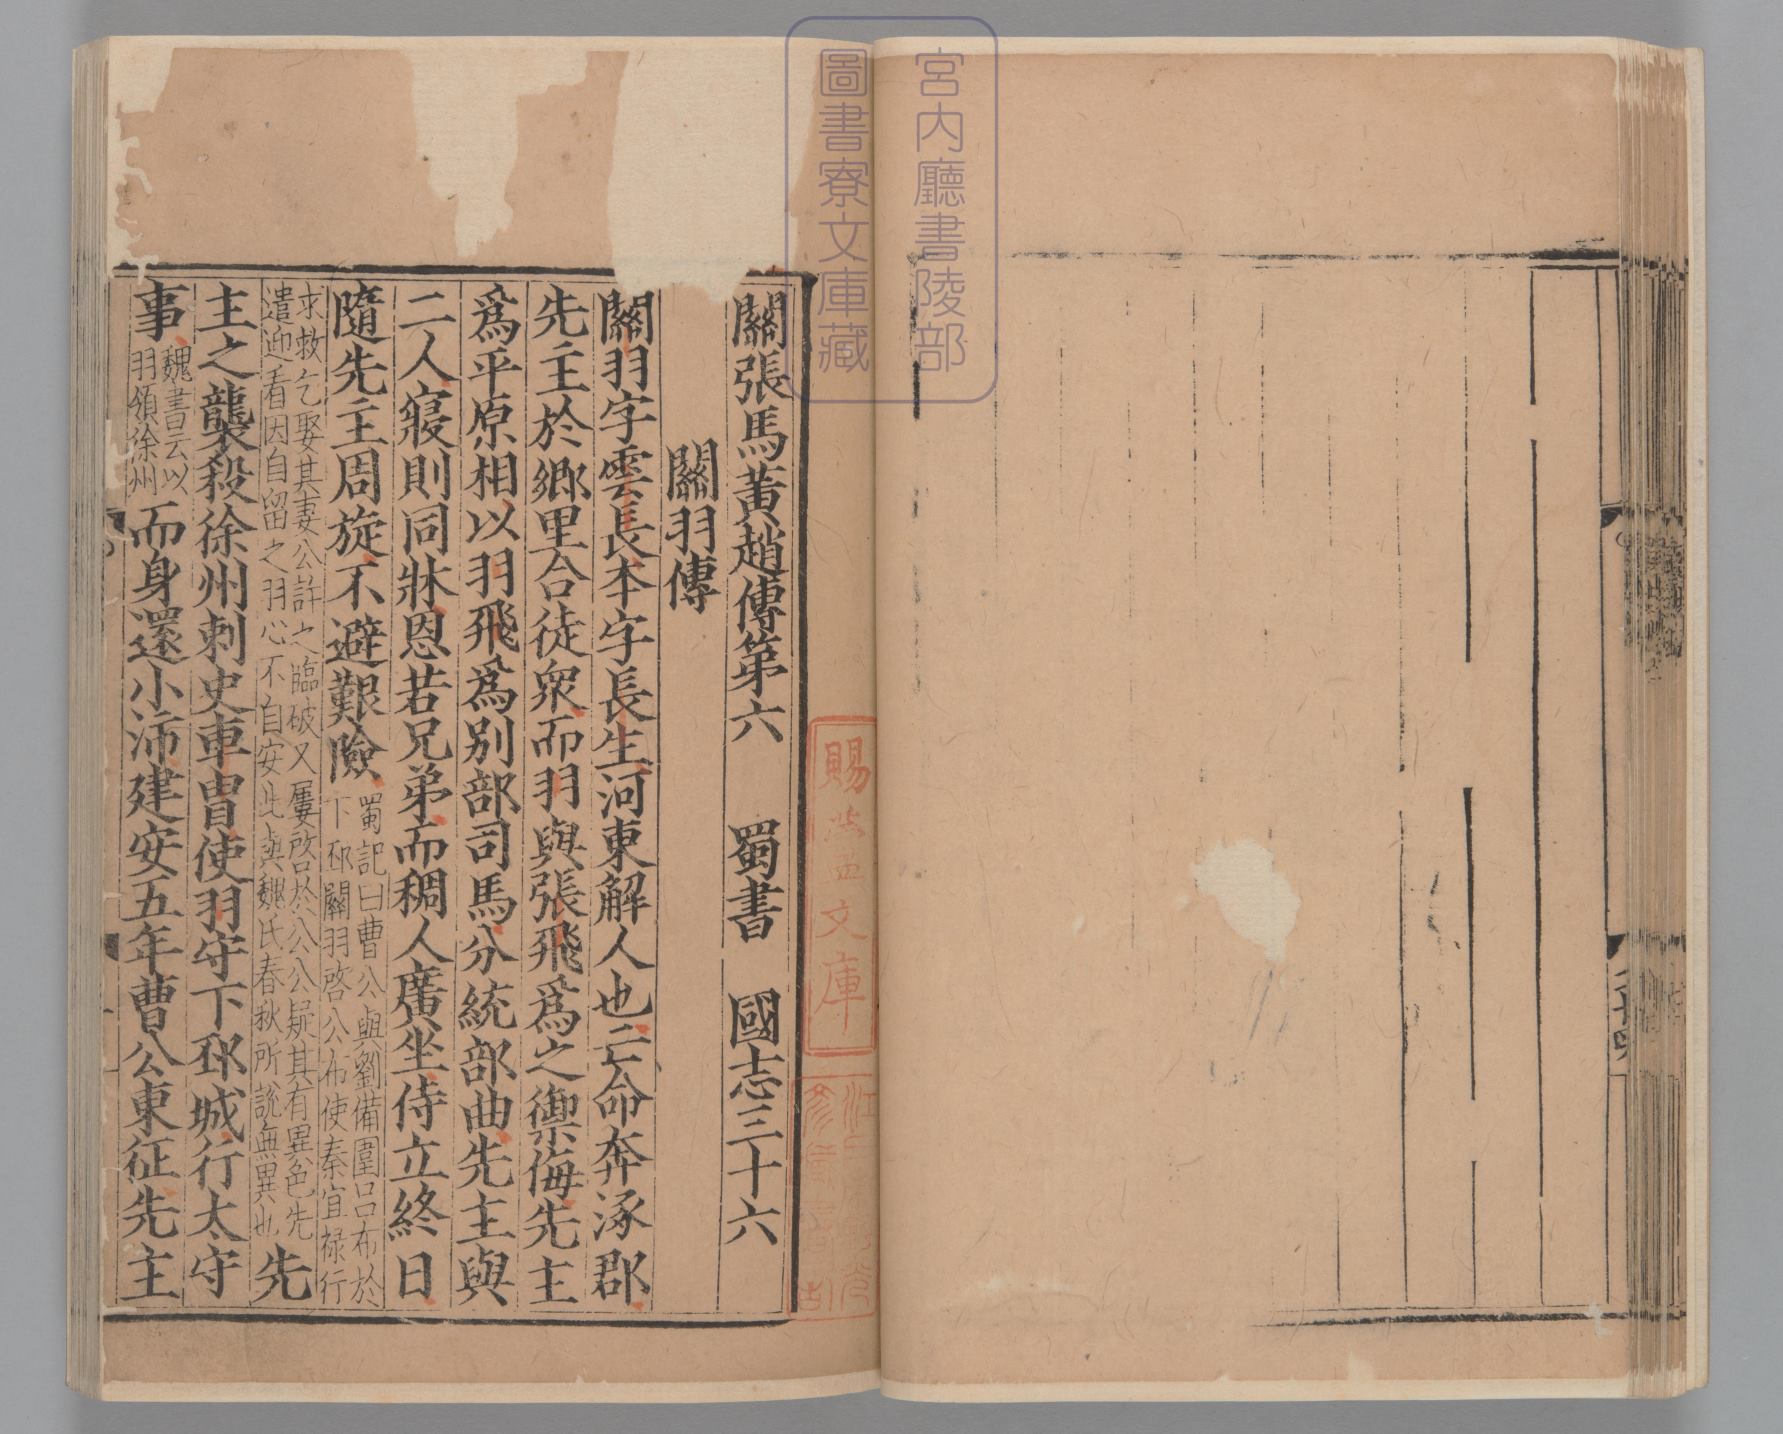 宮内廳書陵部
圖書寮文庫藏
賜蘆文庫
關張馬黃趙傳第六 蜀書 國志三十六
關羽傳
關羽字雲長本字長生河東解人也亡命奔涿郡
先主於鄉里合徒衆而羽與張飛爲之禦侮先主
爲平原相以羽飛爲別部司馬分統部曲先主與
二人寢則同牀恩若兄弟而稠人廣坐侍立終日
隨先主周旋不避艱險
蜀記曰曹公與劉備圍呂布於
下邳關羽啓公布使秦宜禄行
求救乞娶其妻公許之臨破又屢啓於公公疑其有異色先
遣迎看因自留之羽心不自安此與魏氏春秋所說無異也
先
主之襲殺徐州刺史車冑使羽守下邳城行太守
事
魏書云以
羽領徐州
而身還小沛建安五年曹公東征先主